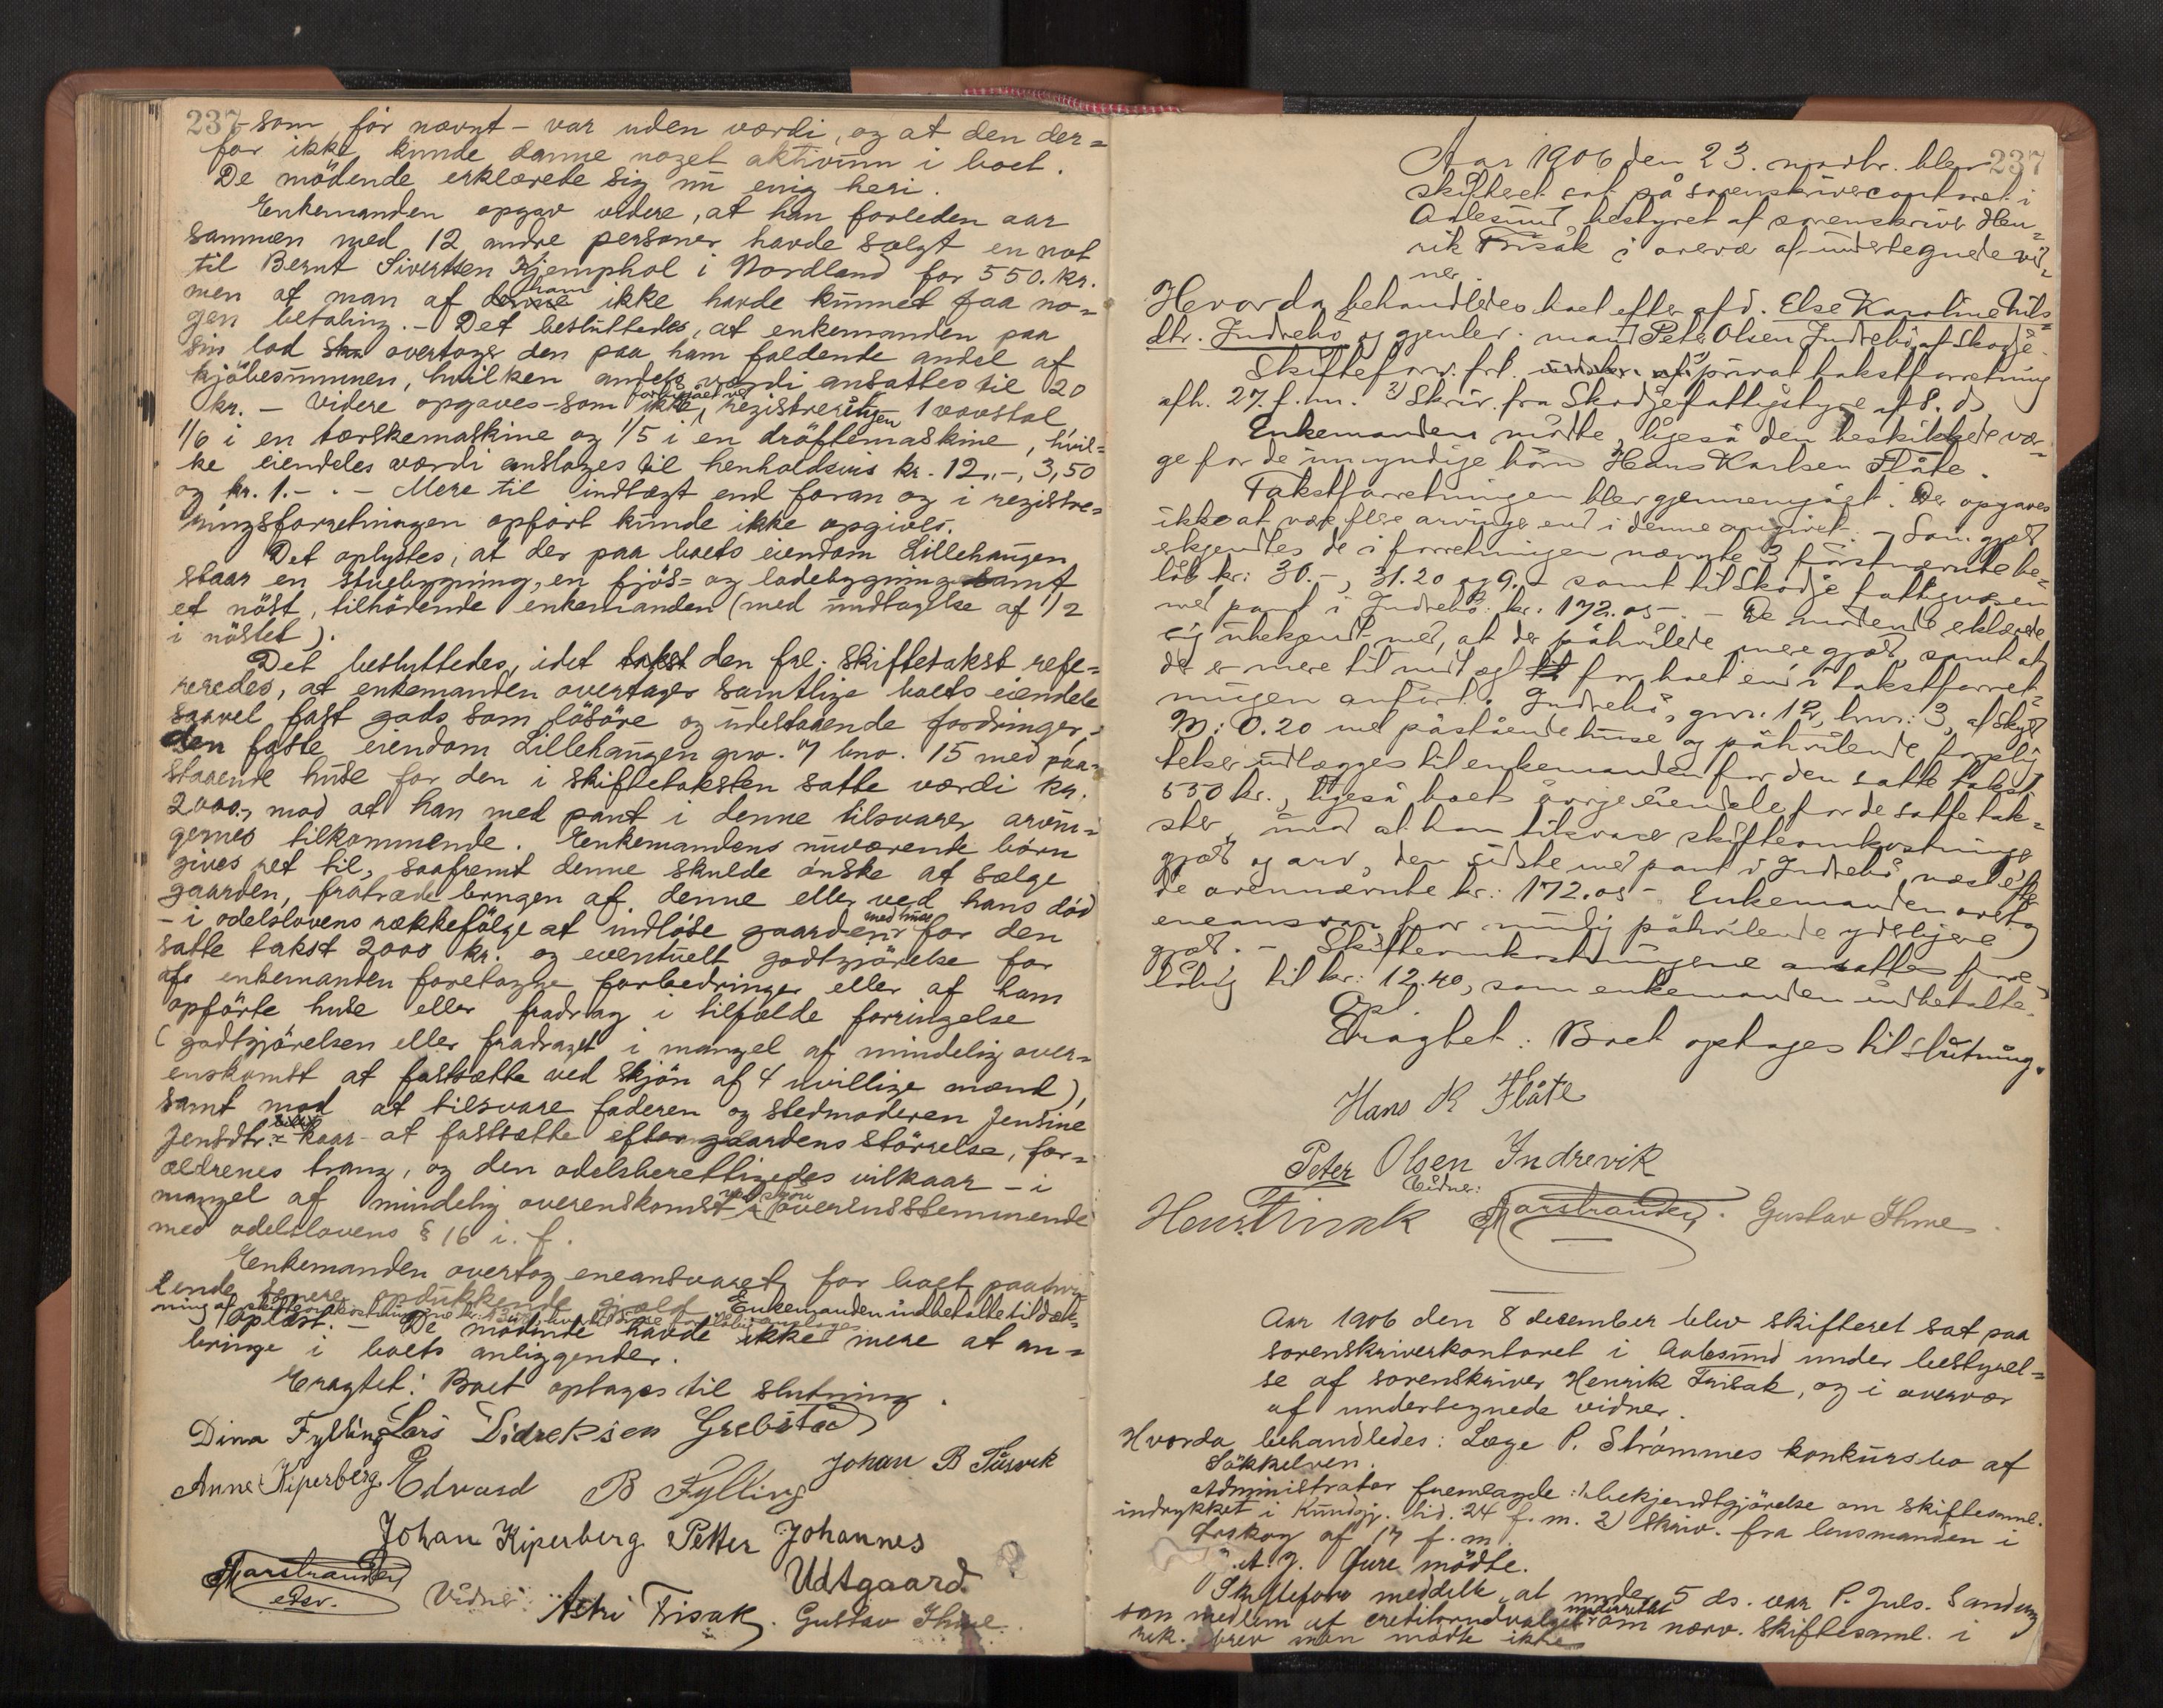 237
- som før nævnt - var uden værdi, og at den der=
for ikke kunde danne noget aktivum i boet.
De mödende erklærede sig nu enig heri.
Enkemanden opgav videre, at han forleden aar
sammen med 12 andre personer havde solgt en not
til Bernt Sivertsen Kjemphol i Nordland for 550. kr.
men at man af ham ikke havde kunnet faa no=
gen betaling. - Det besluttedes, at enkemanden paa
sin lod overtager den paa ham faldende andel af
kjöbesummen, hvilken andels værdi ansattes til 20
kr. - Videre opgaves - som ikke registreringen 1 vovstol
1/6 i en tærskemaskine og 1/5 i en dröftemaskine, hvil=
ke eiendeles værdi anslages til henholdsvis kr. 12.-, 3,50
og kr. 1.- . - Mere til indtægt end foran og i registre=
ringsforretningen opfört kunde ikke opgives.
Det oplystes, at der paa boets eiendom Lillehaugen
staar en stuebygning, en fjös= og ladebygning samt
et nöst, tilhörende enkemanden (med undtagelse af 1/2
i nöstet).
Det besluttedes, idet den fal. skiftetakst refe=
reredes, at enkemanden overtager samtlige boets eiendele
saavel fast gods som lösöre og udestaaende fordringer,
den faste eiendom Lillehaugen gno. 7 bno. 15 med paa=
staaende huse for den i skiftetaksten satte værdi kr.
2000.-, mod at han med pant i denne tilsvarer arvin=
gernes tilkommende. Enkemandens nuværende börn
gives ret til, saafremt denne skulde önske at sælge
gaarden, fratræde brugen af denne eller ved hans död
- i odelslovens rækkefölge at indlöse gaarden med huse for den
satte takst 2000 kr. og eventuelt godtgjörelse for
af enkemanden foretagne forbedringer eller af ham
opförte huse eller fradrag i tilfælde forringelse
(godtgjörelsen eller fradraget i mangel af mindelig over=
enskomst at fastsætte ved skjön af 4 uvillige mænd),
samt mod at tilsvare faderen og stedmoderen Jensine
Jensdtr. kaar at fastsætte efter gaardens störrelse, for=
ældrenes trang, og den odelsberettigedes vilkaar - i
mangel af mindelig overenskomst ved skjön overensstemmende
med odelslovens § 16 i. f.
Enkemanden overtog eneansvaret for boet paahvi=
lende senere opdukkende gjæld. Enkemanden indbetalte til dæk=
ning af skifteomkostningerne
Oplæst. - De mödende havde ikke mere at an=
bringe i boets anliggender.
Eragtet: Boet optages til slutning.
Dina Fylling Lars Didreksen Grebstad
Anne Kiperberg Edvard B Fylling Johan B Tusvik
Johan Kiperberg Petter Johannes
Udtgaard
Marstrander
Vidner: Astri Frisak. Gustav Ihme.
237
Aar 1906 den 23. novbr. blev
skifteret sat på sorenskrivercontoret i
Aalesund, bestyret af sorenskriver Hen=
rik Frisak i overvær af undertegnede vid=
ner
Hvorda behandledes boet efter afd. Else Karoline Nils=
dtr. Indrebö og gjenlev. mand Peter Olsen Indrebö af Skodje
Skifteforv. frl. 1) privat takstforretning
afh. 27. f. m. 2) Skriv. fra Skodje fattigstyre af 8. ds.
Enkemanden mödte, ligeså den beskikkede vær=
ge for de umyndige börn Hans Karlsen Flåte.
Takstforretningen blev gjennemgået. Der opgaves
ikke at være flere arvinger end i denne angivet. - Som gjæld
erkjendtes de i forretningen nævnte 3 förstnævnte be=
löb kr: 30.-, 31.20 og 9.- samt til Skodje fattigvæsen
med pant i Indrebö kr. 172.05 -. - De mödende erklærede
sig ubekjendt med, at der påhvilede mere gjæld, samt at
der er mere til indtægt for boet end i takstforret=
ningen anfört. Indrebö, gnr. 12, bnr: 3, af Skyld
M: 0.20 med påstående huse og påhvilende forplig=
telser udlægges til enkemanden for den satte takst
550 kr., ligeså boets övrige eiendele for de satte tak=
ster, mod at han tilsvarer skifteomkostninger
gjæld og arv, den sidste med pant i Indrebö næst efter
de ovennævnte kr: 172.05 - Enkemanden overtog
eneansvar for mulig påhvilende yderligere
gjæld. - Skifteomkostningerne ansattes fore=
löbig til kr: 12.40, som enkemanden indbetalte.
Opl.
Eragtet: Boet optages til slutning.
Hans K Flåte
Peter Olsen Indrevik
Vidner:
Henr. Frisak Marstrander. Gustav Ihme.
Aar 1906 den 8 december blev skifteret sat paa
sorenskriverkontoret i Aalesund under bestyrel=
se af sorenskriver Henrik Frisak, og i overvær
af undertegnede vidner.
Hvorda behandledes: Læge P. Strömmes konkursbo af
Sökkelven.
Administrator fremlagde: 1) bekjendtgjörelse om skiftesaml.
indrykket i Kundgj. tid. 24 f. m. 2) Skriv. fra lensmanden i
Örskog af 17 f. m.
A. J. Gure mödte.
Skifteforv meddelte, at under 5 ds. var P. Juls. Sandvig
som medlem af creditorudvalget underrettet om nærv. skiftesaml. i
rek. brev men mödte ikke